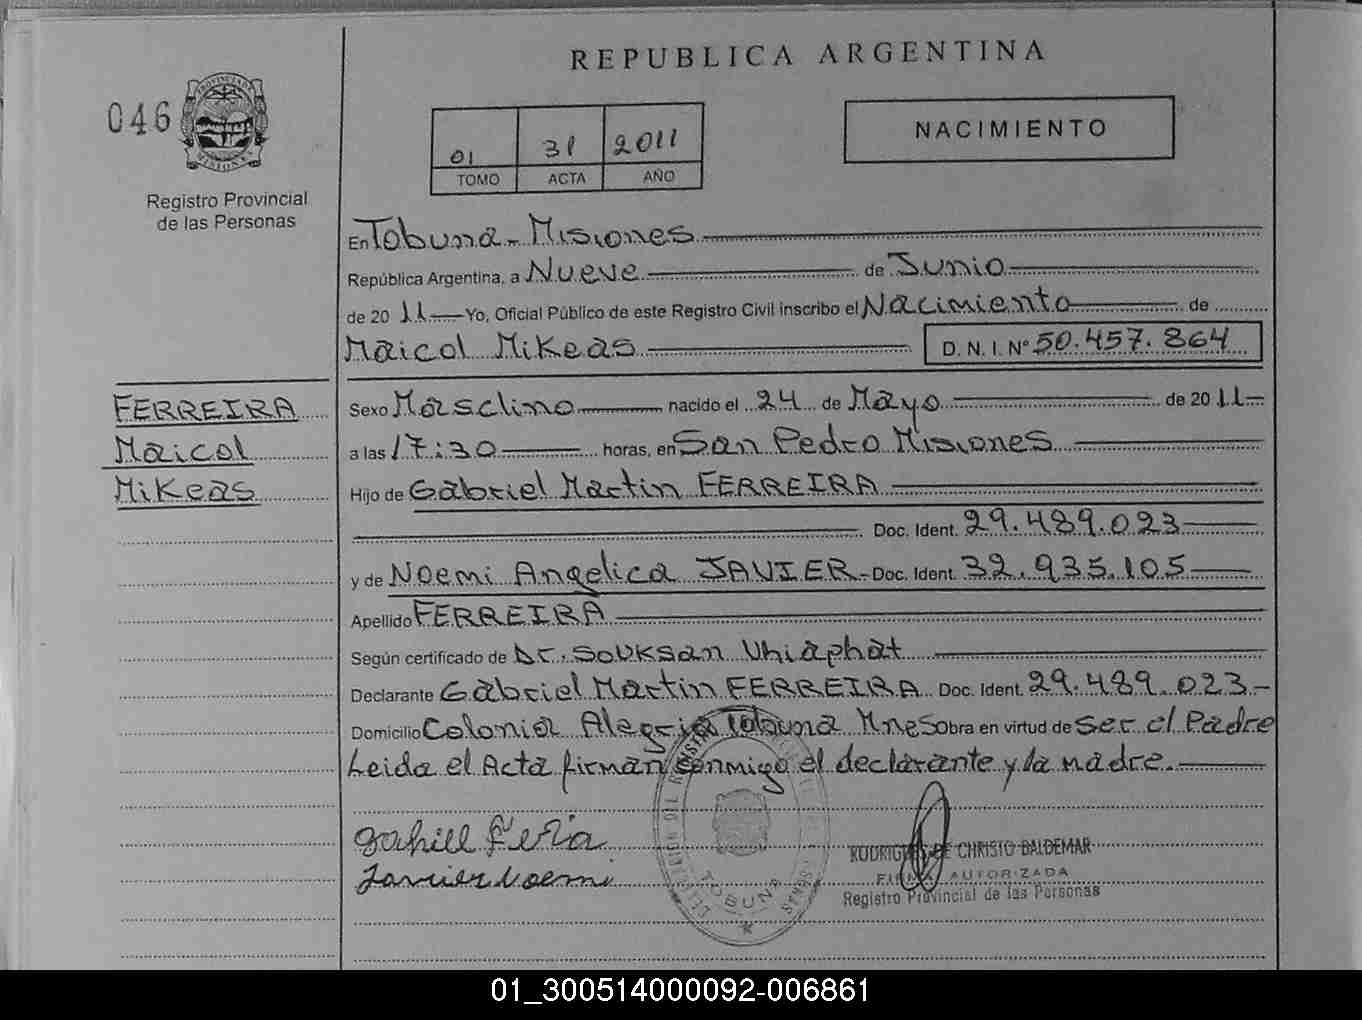 REPUBLICA ARGENTINA
046
PROVINCIA DE MISIONES
Registro Provincial
de las Personas
01 31 2011
TOMO ACTA AÑO
NACIMIENTO
En Tobuna - Misiones
República Argentina, a Nueve de Junio
de 20 11 Yo, Oficial Público de este Registro Civil inscribo el Nacimiento de
Maicol Mikeas D. N. I. Nº 50.457.864
FERREIRA
Maicol
Mikeas
Sexo Masclino nacido el 24 de Mayo de 20 11
a las 17:30 horas, en San Pedro Misiones
Hijo de Gabriel Martin FERREIRA
Doc. Ident. 29.489.023
y de Noemi Angelica JAVIER - Doc. Ident. 32.935.105
Apellido FERREIRA
Según certificado de Dr. Souksan Vhiaphat
Declarante Gabriel Martin FERREIRA Doc. Ident. 29.489.023-
Domicilio Colonia Alegria Tobuna Mnes Obra en virtud de ser el Padre
Leida el Acta firman conmigo el declarante y la madre.
Javier Noemi
TOBUNA
RODRIGUES DE CHRISTO BALDEMAR
FIRMA AUTORIZADA
Registro Provincial de las Personas
01_300514000092-006861